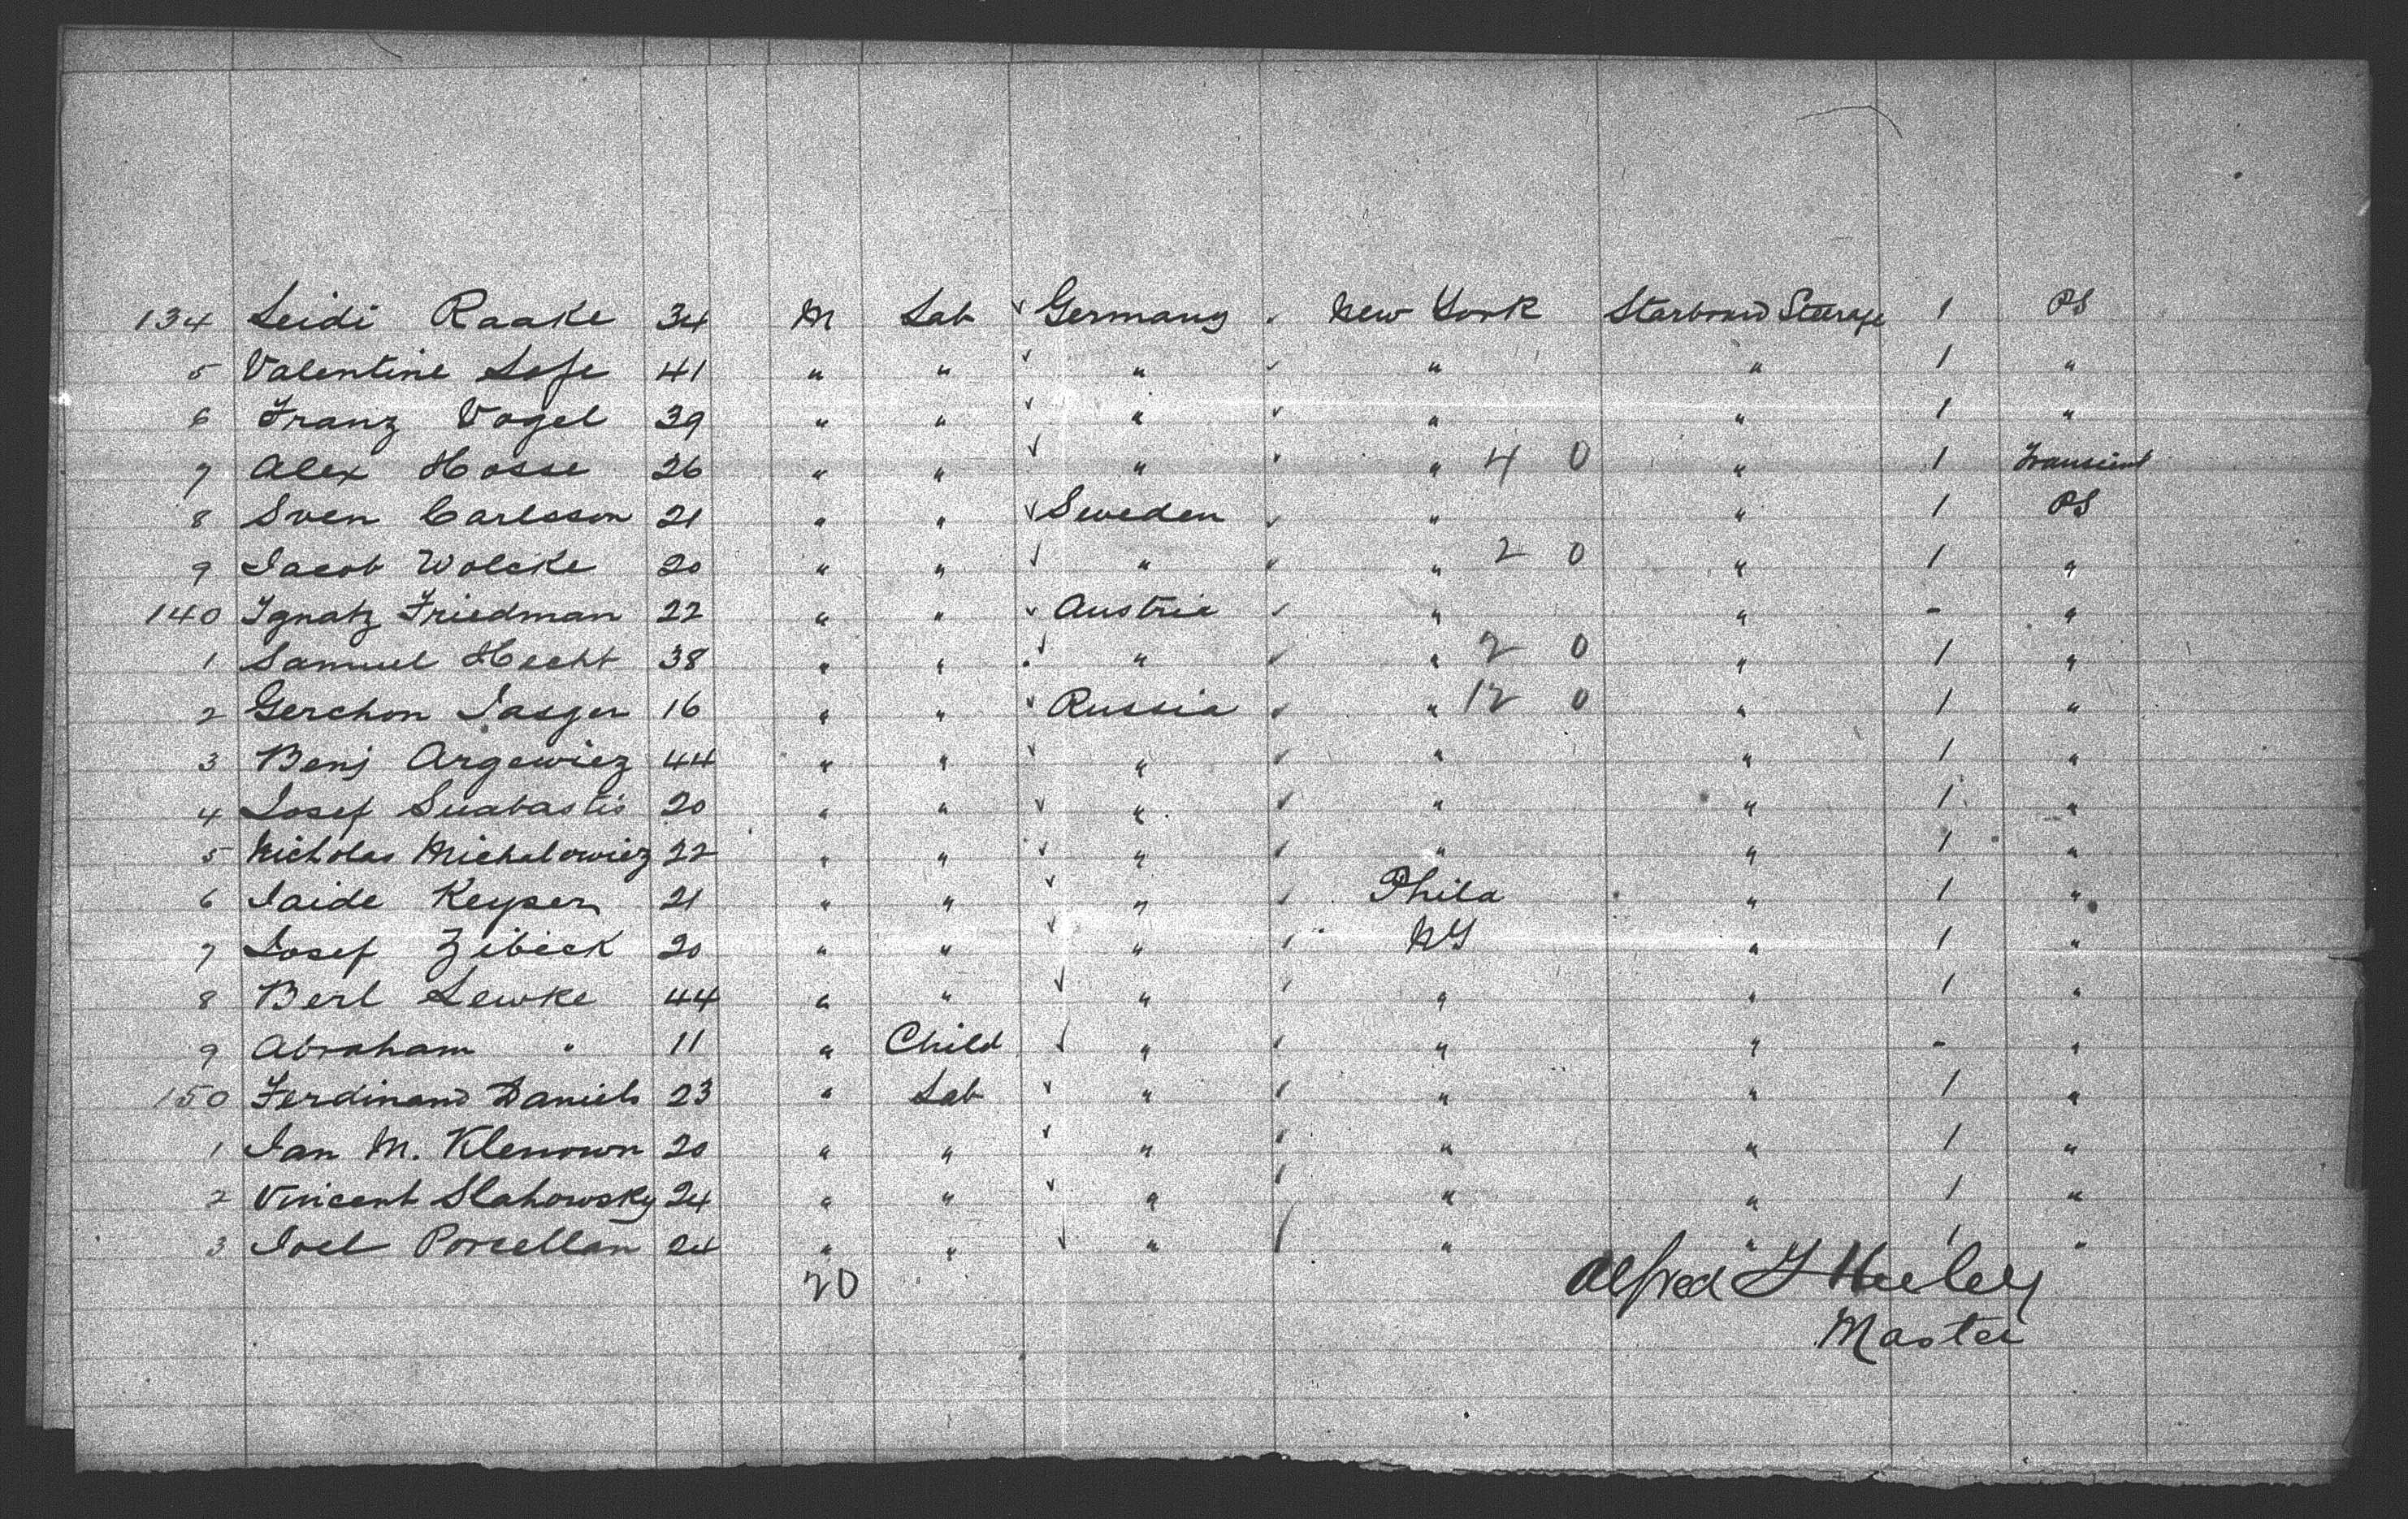 134 Leidi Raake 34 M Lab ✓ Germany New York Starboard Steerage 1 PS
5 Valentine Lofe 41 " " ✓ " ✓ " " 1 "
6 Franz Vogel 39 " " ✓ " ✓ " " 1 "
7 Alex Hosse 26 " " ✓ " ✓ " 4 0 " 1 Transient
8 Sven Carlsson 21 " " ✓ Sweden ✓ " " 1 PS
9 Jacob Wolcke 20 " " ✓ " ✓ " 2 0 " 1 "
140 Ignatz Friedman 22 " " ✓ Austria ✓ " " - "
1 Samuel Hecht 38 " " ✓ " ✓ " 2 0 " 1 "
2 Gerchon 16 " " ✓ Russia ✓ " 12 0 " 1 "
3 Benj Argewiez 44 " " ✓ " ✓ " " 1 "
4 Josef Suabastis 20 " " ✓ " ✓ " " 1 "
5 Nicholas Michalowiez 22 " " ✓ " ✓ " " 1 "
6 Jaide Keyser 21 " " ✓ " ✓ Phila " 1 "
7 Josef Zibeck 20 " " ✓ " ✓ NY " 1 "
8 Berl Lewke 44 " " ✓ " ✓ " " 1 "
9 Abraham " 11 " Child ✓ " ✓ " " - "
150 Ferdinand Daniels 23 " Lab ✓ " ✓ " " 1 "
1 Jan M. Klenown 20 " " ✓ " ✓ " " 1 "
2 Vincent Slahowsky 24 " " ✓ " ✓ " " 1 "
3 Joel Porcellan 24 " " ✓ " ✓ " " 1 "
20
Alfred
Master